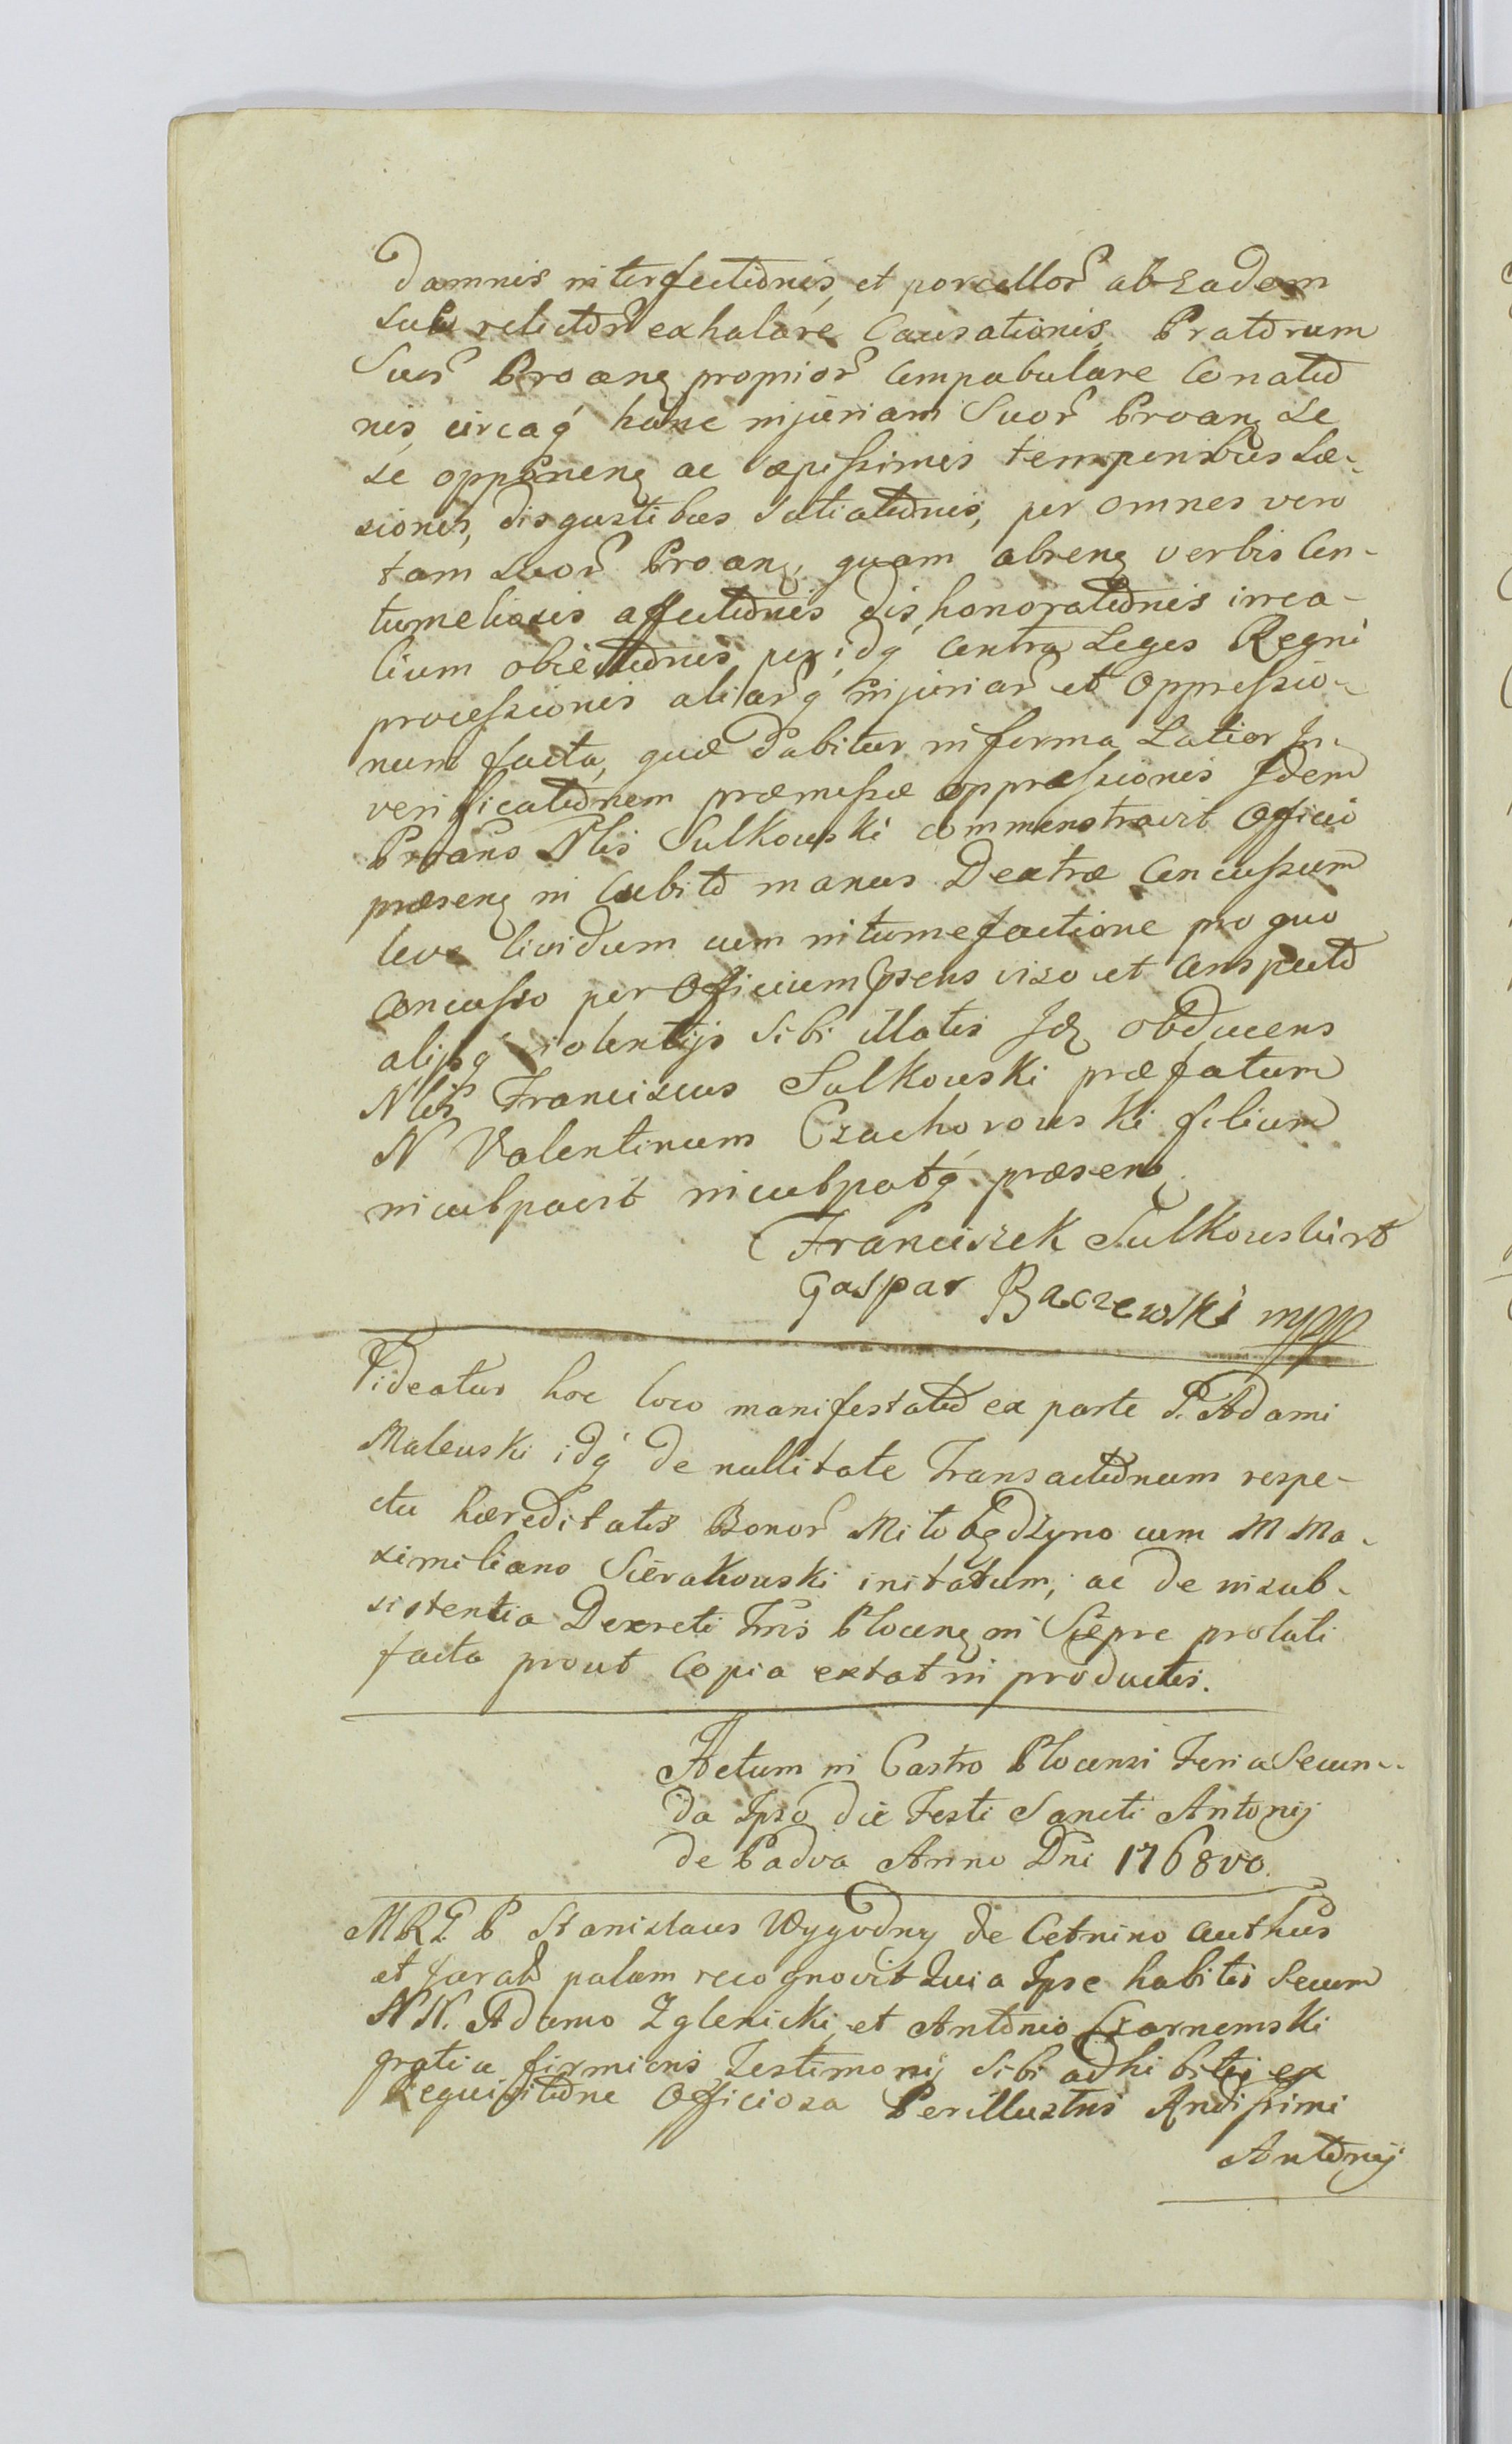 damnis interfectionis, et porcellor ab Eadem
Sue relictor exhalare Causationis, Pratorum
Suor Proang proprior Compabulare Conatio
nis, circaq hunc injuriam Suor Proang Se
Se opponeng ac sæpissimis temporibus Læ-
sionis, disgustibus Satiationis, per omnes vero
tam Suor Proang, quam abseng verbis Con-
tumeliosis affectionis dishonorationis irrea-
lium obiectionis, peridq Contra Leges Regni
processionis aliarq injuriar et Oppressio-
num facta, quæ dabitur in forma Latior In
verificationem præmissæ oppressionis Idem
Proans Nlis Sulkowski commonstravit Officio
præseng in Cubito manus Dextræ Concussum
leve lividum cum intumefactione pro quo
Concusso per Officium Psens viso et Conspecto
alijsq violentijs Sibi illatis Idq obducens
Nlis Franciscus Sulkowski præfatum
N Valentinum Czachorowski filium
inculpavit inculpatq præsens
Franciszek Sulkowski rt
Gaspar Baczewski mpp
Videatur hoc loco manifestatio ex parte P. Adami
Malewski idq de nullitate Transactionum respe-
ctu hæreditatis Bonor Mitobędzyno cum M Ma-
ximiliano Sierakowski initatum, ac de insub-
sistentia Decreti Tris Ploceng in Siepre prolati
facta prout Copia extat in productis.
Actum in Castro Plocensi Feria Secun-
da Ipso die Festi Sancti Antonij
de Padva Anno Dni 1768vo.
MRG. P Stanislaus Wygodny de Cetnino Authus
et Jurats palam recognovit Quia Ipse habitis Secum
NN. Adamo Zglenicki, et Antonio Czarnomski
gratia firmioris Testimonij Sibi adhibitis ex
Requisitione Officiosa Perillustris Rndissimi
Antonij